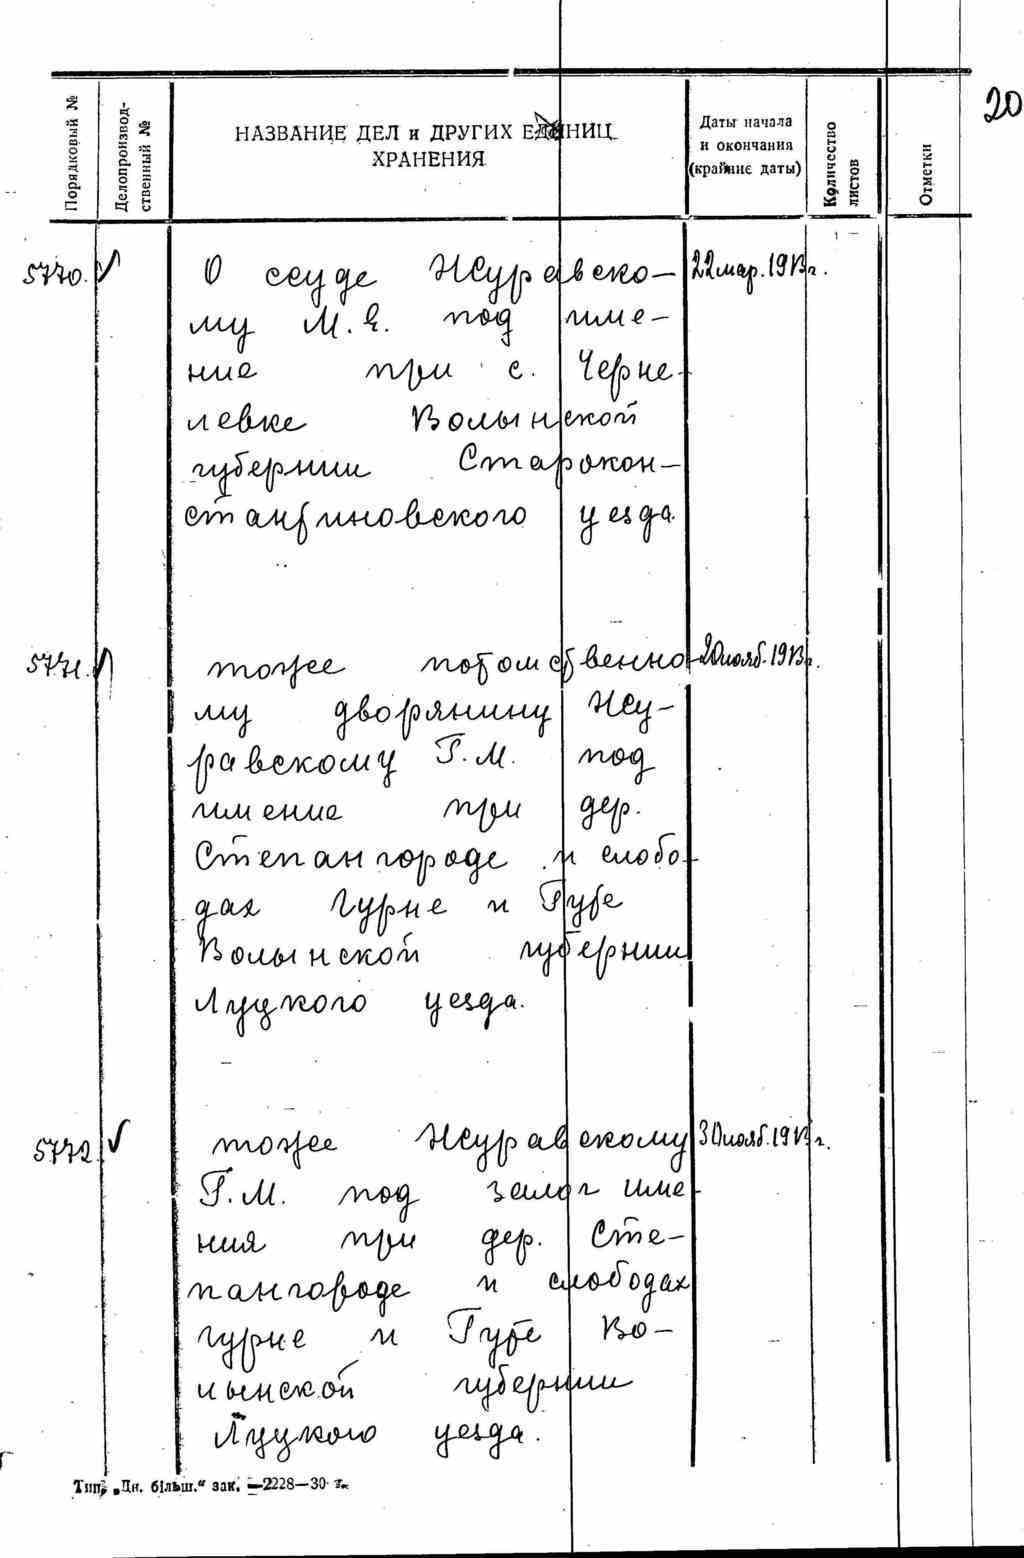 20
Порядковый №
Делопроизвод-
ственный №
НАЗВАНИЕ ДЕЛ и ДРУГИХ ЕДИНИЦ
ХРАНЕНИЯ
Даты начала
и окончания
(крайние даты)
Количество
листов
Отметки
5770. О ссуде Журавско- 22 мар. 1913 г.
му М.Я. под име-
ние при с. Черне-
левке Волынской
губернии Старокон-
стантиновского уезда
5771. тоже потомственно- 20 нояб. 1913 г.
му дворянину Жу-
равскому Г.М. под
имение при дер.
Степангороде и слобо-
дах Гурне и Губе
Волынской губернии
Луцкого уезда.
5772 тоже Журавскому 30 нояб. 1913 г.
Г.М. под залог име-
ния при дер. Сте-
пангороде и слободах
гурне и Губе Во-
лынской губернии
Луцкого уезда.
Тип. „Дн. більш." зак. —2228—30 т.